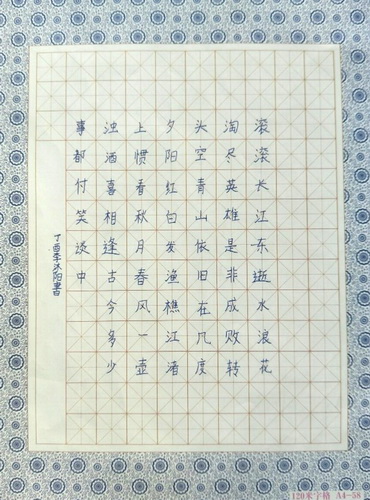 滚滚长江东逝水浪花
淘尽英雄是非成败转
头空青山依旧在几度
夕阳红白发渔樵江渚
上惯看秋月春风一壶
浊酒喜相逢古今多少
事都付笑谈中
丁酉李沐阳書
120米字格 A4-58